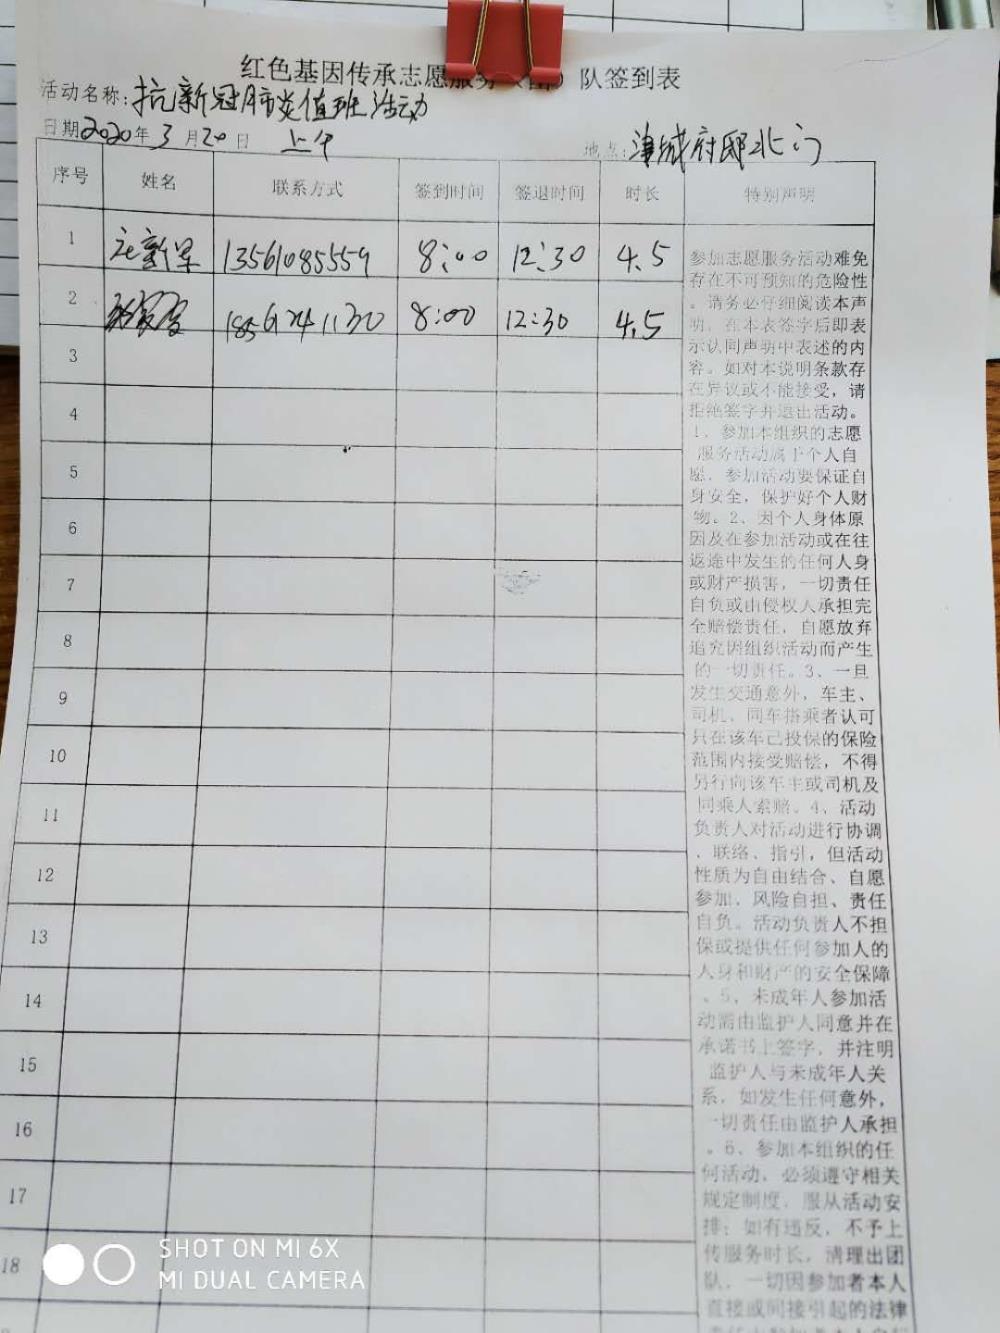 红色基因传承志愿服务（团）队签到表
活动名称:抗新冠肺炎值班活动
日期2020年3月20日 上午 地点:津城府邸北门
序号 姓名 联系方式 签到时间 签退时间 时长 特别声明
1 13561085559 8:00 12:30 4.5
2 18561241130 8:00 12:30 4.5
3
4
5
6
7
8
9
10
11
12
13
14
15
16
17
18
参加志愿服务活动难免
存在不可预知的危险性
。请务必仔细阅读本声
明，在本表签字后即表
示认同声明中表述的内
容。如对本说明条款存
在异议或不能接受，请
拒绝签字并退出活动。
1、参加本组织的志愿
服务活动属于个人自
愿，参加活动要保证自
身安全，保护好个人财
物。2、因个人身体原
因及在参加活动或在往
返途中发生的任何人身
或财产损害，一切责任
自负或由侵权人承担完
全赔偿责任，自愿放弃
追究因组织活动而产生
的一切责任。3、一旦
发生交通意外，车主、
司机、同车搭乘者认可
只在该车已投保的保险
范围内接受赔偿，不得
另行向该车主或司机及
同乘人索赔。4、活动
负责人对活动进行协调
、联络、指引，但活动
性质为自由结合、自愿
参加、风险自担、责任
自负。活动负责人不担
保或提供任何参加人的
人身和财产的安全保障
。5、未成年人参加活
动需由监护人同意并在
承诺书上签字，并注明
监护人与未成年人关
系，如发生任何意外，
一切责任由监护人承担
。6、参加本组织的任
何活动，必须遵守相关
规定制度，服从活动安
排；如有违反，不予上
传服务时长，清理出团
队，一切因参加者本人
直接或间接引起的法律
SHOT ON MI 6X
MI DUAL CAMERA